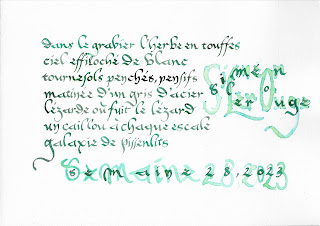 dans le gravier l'herbe en touffes
ciel effiloché de blanc
tournesols penchés, pensifs
matinée d'un gris d'acier
lézarde où fuit le lézard
un caillou à chaque escale
galaxie de pissenlits
Siméon
Le Rouge
Semaine 28, 2023